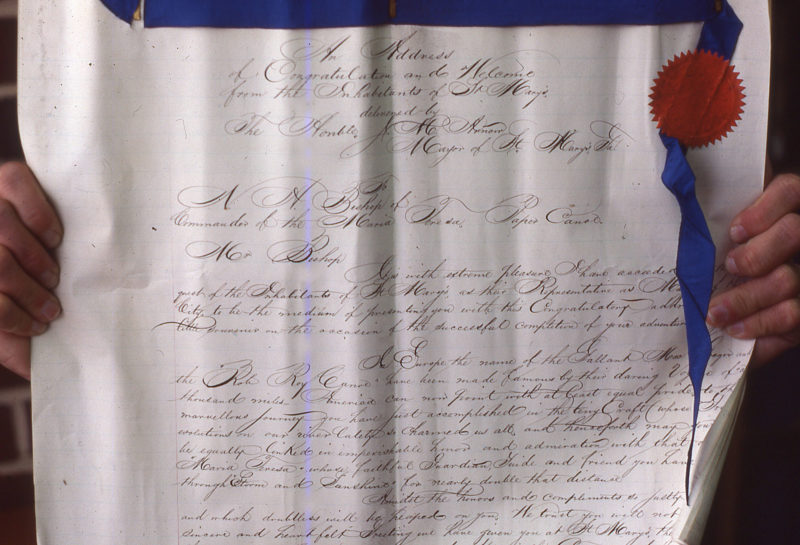 An Address
of Congratulation and Welcome
from the Inhabitants of St Mary's
delivered by
The Honble. J M Arnow
Mayor of St. Mary's, Ga.
To
N H Bishop of
Commander of the Maria Teresa, Paper Canoe.
Mr Bishop
It is with extreme pleasure I have acceded
quest of the Inhabitants of St Mary's, as their Representative as
City to be the medium of presenting you with this Congratulatory
little souvenir on the occasion of the successful completion of your
In Europe the name of the Gallant
the Rob Roy Canoe have been made famous by their daring
thousand miles. America can now point with at least equal pride to
marvellous journey you have just accomplished in the tiny Craft (whose
evolutions on our river lately so charmed us all, and henceforth may
be equally linked in imperishable honor and admiration with that
Maria Teresa whose faithful Guardian Guide and friend you have
through Storm and Sunshine, for nearly double that distance
Amidst the honors and complements so justly
and which doubtless will be heaped on you. We trust you will not
sincere and heartfelt Greeting we have given you at St Mary's, the